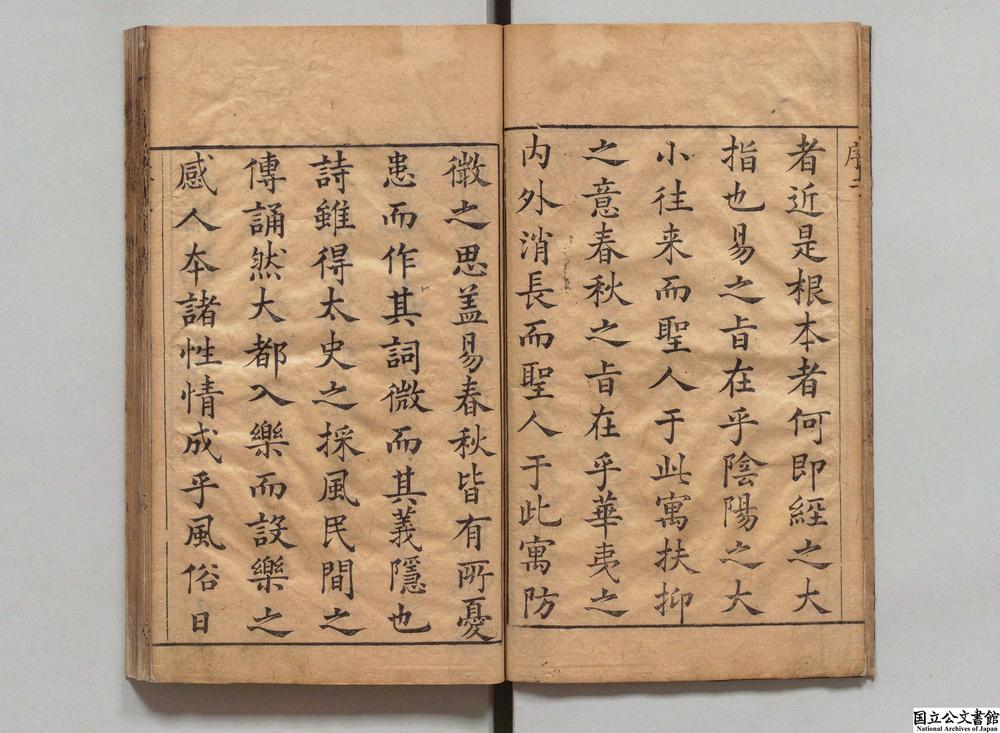 者近是根本者何即經之大
指也易之旨在乎陰陽之大
小往来而聖人于此寓扶抑
之意春秋之旨在乎華夷之
内外消長而聖人于此寓防
微之思盖易春秋皆有所憂
患而作其詞微而其義隱也
詩雖得太史之採風民間之
傳誦然大都入樂而設樂之
感人本諸性情成乎風俗日
国立公文書館
National Archives of Japan